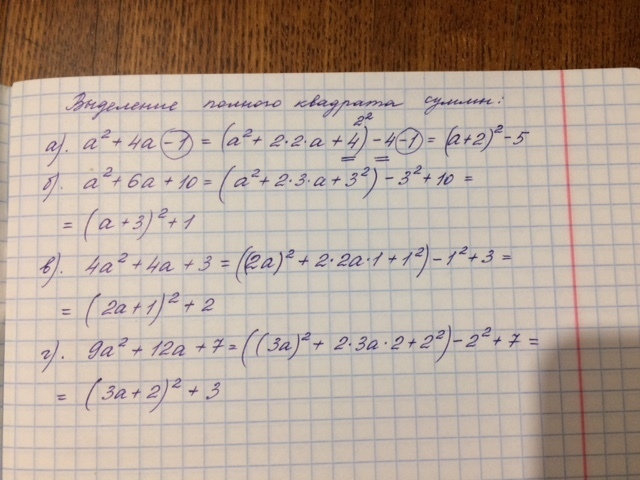 Выделение полного квадрата суммы:
а). a² + 4a - 1 = (a² + 2·2·a + 4) - 4 - 1 = (a+2)² - 5
2²
б). a² + 6a + 10 = (a² + 2·3·a + 3²) - 3² + 10 =
= (a + 3)² + 1
в). 4a² + 4a + 3 = ((2a)² + 2·2a·1 + 1²) - 1² + 3 =
= (2a + 1)² + 2
г). 9a² + 12a + 7 = ((3a)² + 2·3a·2 + 2²) - 2² + 7 =
= (3a + 2)² + 3